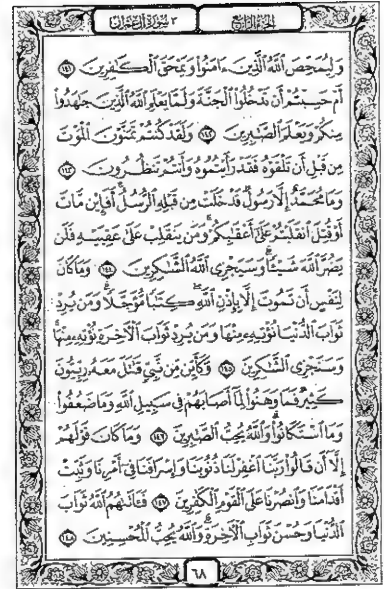 الجزء الرابع ٣ سورة آل عمران
وَلِيُمَحِّصَ اللَّهُ الَّذِينَ ءَامَنُوا وَيَمْحَقَ الْكَٰفِرِينَ ١٤١
أَمْ حَسِبْتُمْ أَن تَدْخُلُوا الْجَنَّةَ وَلَمَّا يَعْلَمِ اللَّهُ الَّذِينَ جَٰهَدُوا
مِنكُمْ وَيَعْلَمَ الصَّٰبِرِينَ ١٤٢ وَلَقَدْ كُنتُمْ تَمَنَّوْنَ الْمَوْتَ
مِن قَبْلِ أَن تَلْقَوْهُ فَقَدْ رَأَيْتُمُوهُ وَأَنتُمْ تَنظُرُونَ ١٤٣
وَمَا مُحَمَّدٌ إِلَّا رَسُولٌ قَدْ خَلَتْ مِن قَبْلِهِ الرُّسُلُ أَفَإِيْن مَّاتَ
أَوْ قُتِلَ انقَلَبْتُمْ عَلَىٰ أَعْقَٰبِكُمْ وَمَن يَنقَلِبْ عَلَىٰ عَقِبَيْهِ فَلَن
يَضُرَّ اللَّهَ شَيْئًا وَسَيَجْزِي اللَّهُ الشَّٰكِرِينَ ١٤٤ وَمَا كَانَ
لِنَفْسٍ أَن تَمُوتَ إِلَّا بِإِذْنِ اللَّهِ كِتَٰبًا مُّؤَجَّلًا وَمَن يُرِدْ
ثَوَابَ الدُّنْيَا نُؤْتِهِ مِنْهَا وَمَن يُرِدْ ثَوَابَ الْآخِرَةِ نُؤْتِهِ مِنْهَا
وَسَنَجْزِي الشَّٰكِرِينَ ١٤٥ وَكَأَيِّن مِّن نَّبِيٍّ قَٰتَلَ مَعَهُ رِبِّيُّونَ
كَثِيرٌ فَمَا وَهَنُوا لِمَا أَصَابَهُمْ فِي سَبِيلِ اللَّهِ وَمَا ضَعُفُوا
وَمَا اسْتَكَانُوا وَاللَّهُ يُحِبُّ الصَّٰبِرِينَ ١٤٦ وَمَا كَانَ قَوْلَهُمْ
إِلَّا أَن قَالُوا رَبَّنَا اغْفِرْ لَنَا ذُنُوبَنَا وَإِسْرَافَنَا فِي أَمْرِنَا وَثَبِّتْ
أَقْدَامَنَا وَانصُرْنَا عَلَى الْقَوْمِ الْكَٰفِرِينَ ١٤٧ فَـَٔاتَىٰهُمُ اللَّهُ ثَوَابَ
الدُّنْيَا وَحُسْنَ ثَوَابِ الْآخِرَةِ وَاللَّهُ يُحِبُّ الْمُحْسِنِينَ ١٤٨
٦٨